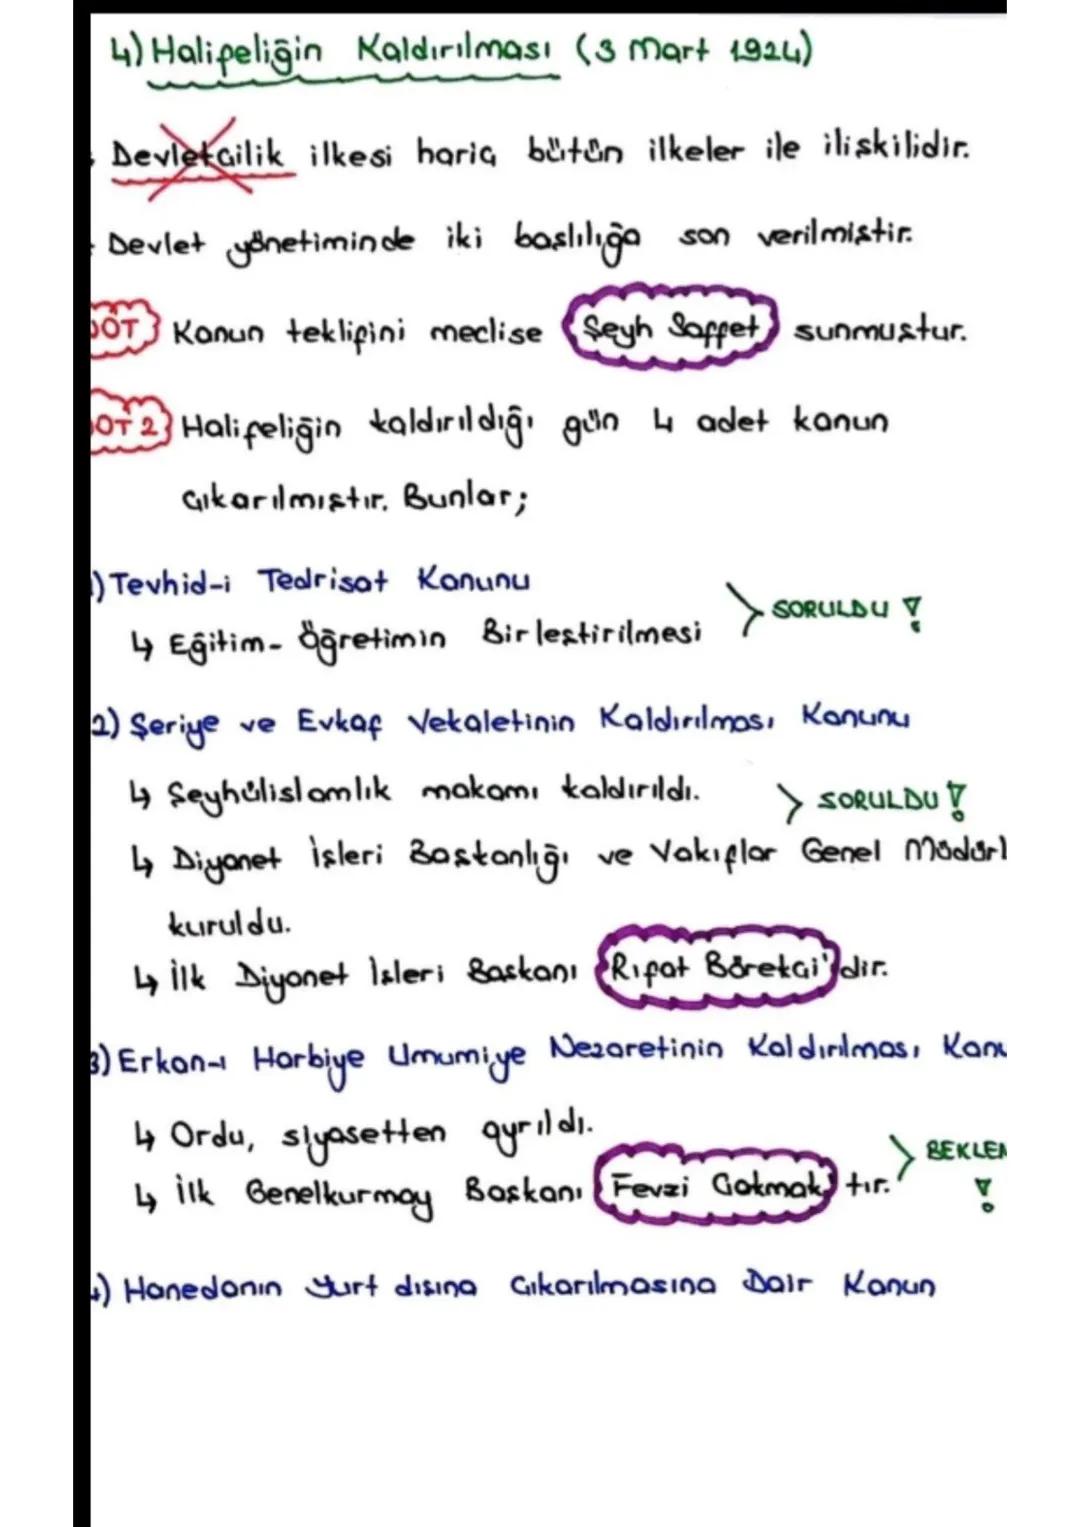 4) Halifeliğin Kaldırılması (3 Mart 1924)
Devletçilik ilkesi hariç bütün ilkeler ile ilişkilidir.
Devlet yönetiminde iki başlılığa son verilmiştir.
NOT Kanun teklifini meclise Şeyh Saffet sunmuştur.
NOT 2 Halifeliğin kaldırıldığı gün 4 adet kanun
çıkarılmıştır. Bunlar;
1) Tevhid-i Tedrisat Kanunu
↳ Eğitim-Öğretimin Birleştirilmesi > SORULDU !
2) Şeriye ve Evkaf Vekaletinin Kaldırılması Kanunu
↳ Şeyhülislamlık makamı kaldırıldı. > SORULDU !
↳ Diyanet İşleri Başkanlığı ve Vakıflar Genel Müdürl
kuruldu.
↳ İlk Diyanet İşleri Başkanı Rıfat Börekçi'dir.
3) Erkan-ı Harbiye Umumiye Nezaretinin Kaldırılması Kanu
↳ Ordu, siyasetten ayrıldı.
↳ İlk Genelkurmay Başkanı Fevzi Çakmak'tır. > BEKLEN !
4) Hanedanın Yurt dışına Çıkarılmasına Dair Kanun